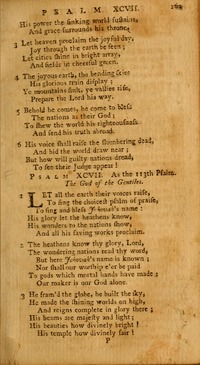 PSALM XCVII.
His power the sinking world sustains,
And grace surrounds his throne.
3 Let heaven proclaim the joyful day,
Joy through the earth be seen;
Let cities shine in bright array,
And fields in cheerful green.
4 The joyous earth, the bending skies
His glorious train display;
Ye mountains sink, ye vallies rise,
Prepare the Lord his way.
5 Behold he comes, he come to bless
The nations as their God;
To shew the world his righteousness
And send his truth abroad.
6 His voice shall raise the slumbering dead,
And bid the world draw near;
But how will guilty nations dread,
To see their Judge appear!
PSALM XCVII. As the 113th Psalm.
The God of the Gentiles.
1 LET all the earth their voices raise,
To sing the choicest psalm of praise,
To sing and bless Jehovah's name:
His glory let the heathens know,
His wonders to the nations show,
And all his saving works proclaim.
2 The heathens know thy glory, Lord,
The wondering nations read thy word,
But here Jehovah's name is known;
Nor shall our worship e'er be paid
To gods which mortal hands have made;
Our maker is our God alone.
3 He fram'd the globe, he built the sky,
He made the shining worlds on high,
And reigns complete in glory there;
His beams are majesty and light;
His beauties how divinely bright!
His temple how divinely fair!
P